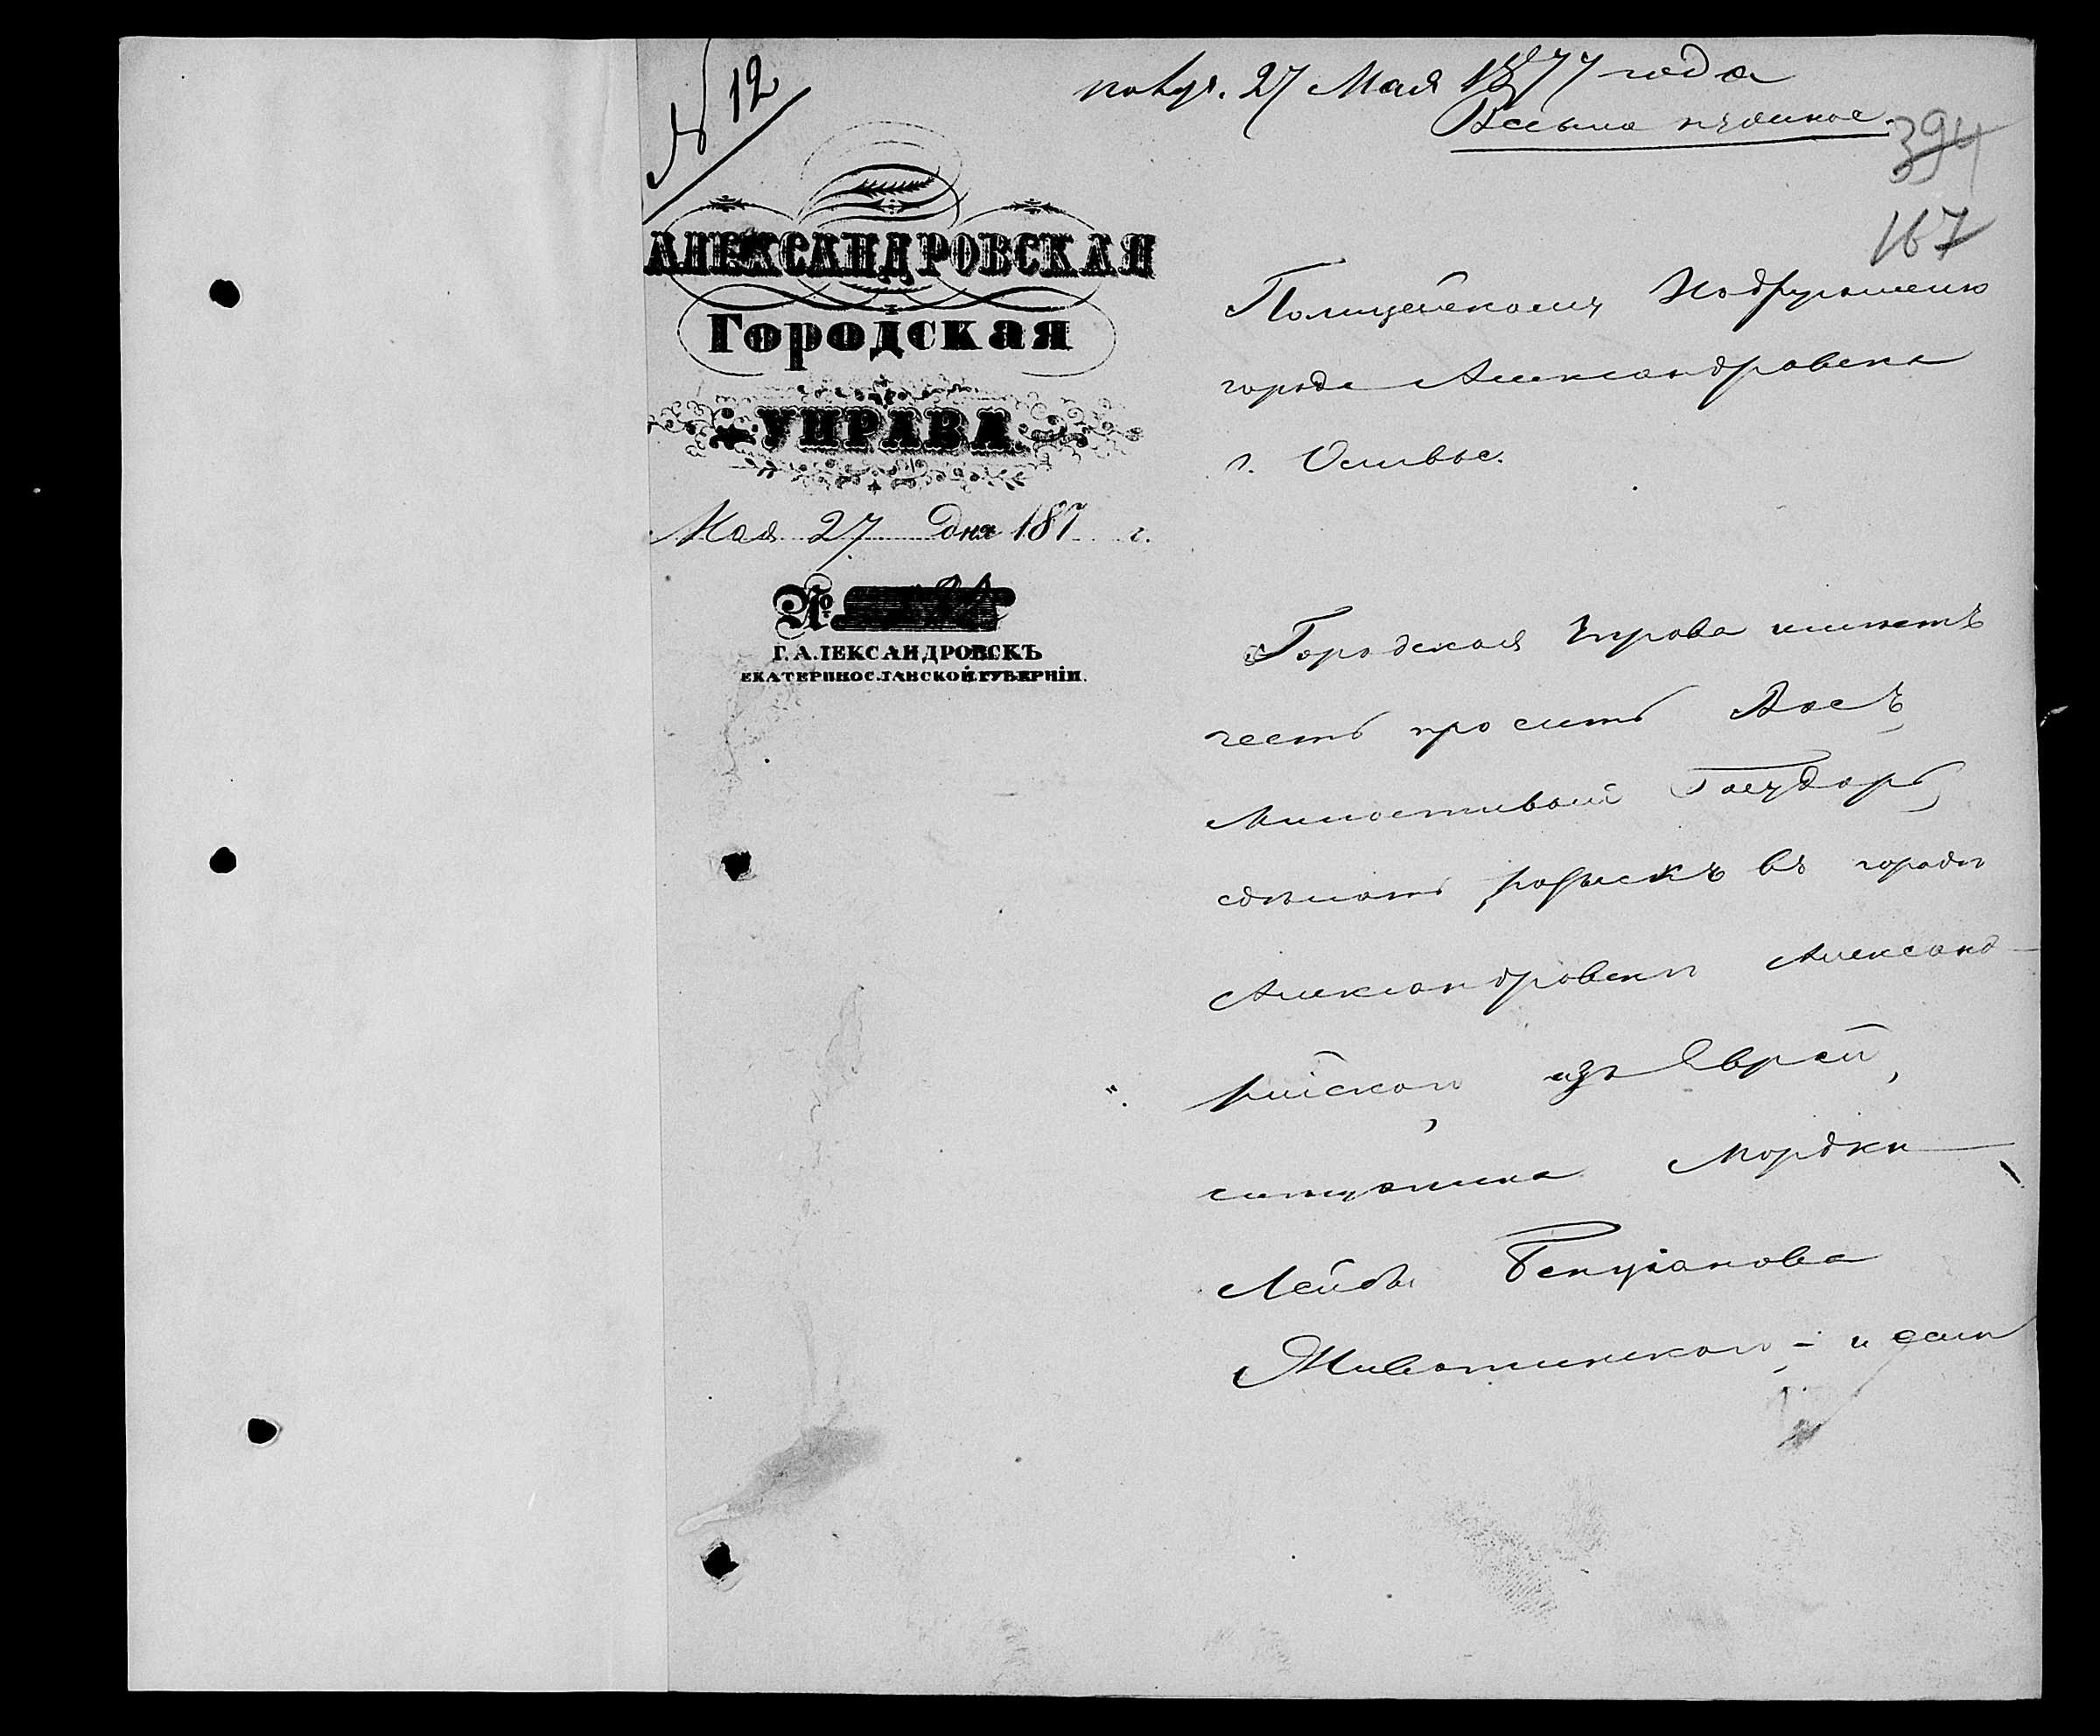 № 12
получ. 27 Мая 1877 года
Весьма нужное.
394
167
АЛЕКСАНДРОВСКАЯ
Городская
УПРАВА
Мая 27 дня 187 г.
№
Г. АЛЕКСАНДРОВСКЪ
ЕКАТЕРИНОСЛАВСКОЙ ГУБЕРНІИ.
Полицейскому Надзирателю
города Александровска
г.
Городская Управа имѣетъ
честь просить Васъ,
Милостивый Государь,
сдѣлать розыскъ въ городѣ
Александровскѣ Александ-
рійскаго, изъ Евреей,
мѣщанина Мордки-
Лейбы
Животинскаго - и если